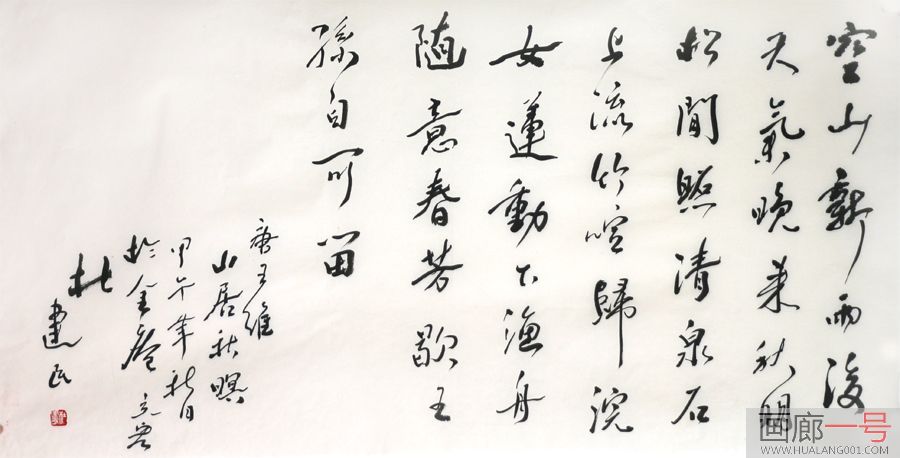 空山新雨後
天氣晚来秋明
松間照清泉石
上流竹喧歸浣
女蓮動下漁舟
随意春芳歇王
孫自可留
唐王維
山居秋暝
甲午年秋日
於金
杜
建民
画廊一号
WWW.HUALANG001.COM